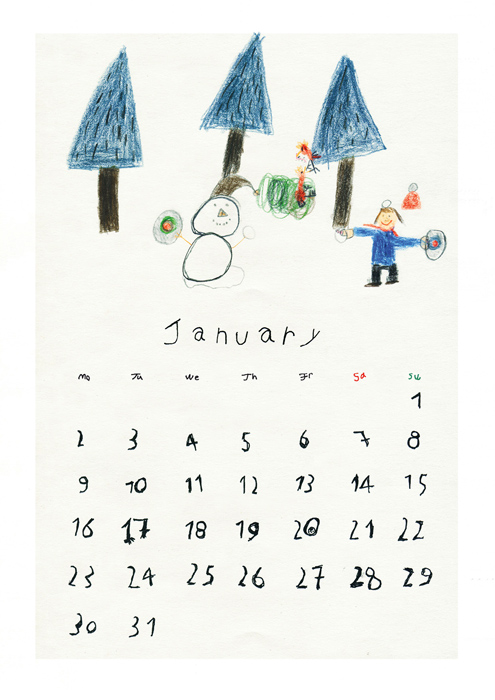 January
Mo Tu We Th Fr Sa Su
1
2 3 4 5 6 7 8
9 10 11 12 13 14 15
16 17 18 19 20 21 22
23 24 25 26 27 28 29
30 31